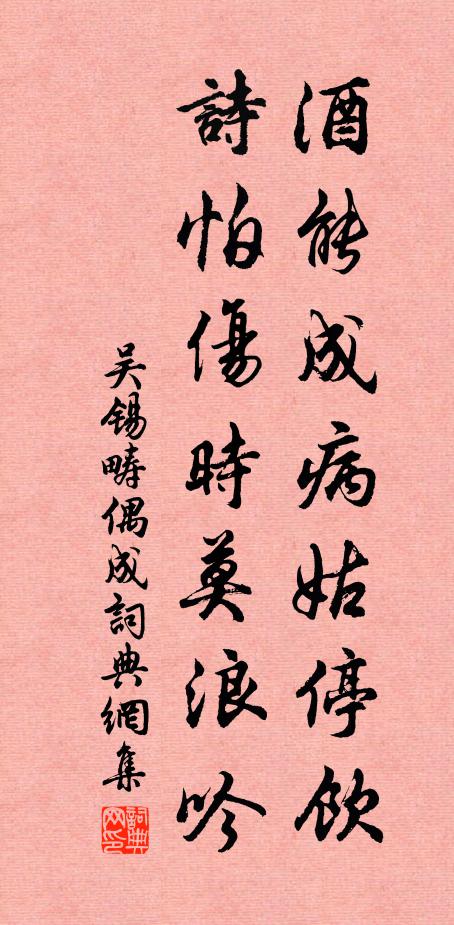 酒能成病姑停飲
詩怕傷時莫浪吟
吴錫疇偶成詞典網集
詞典网印